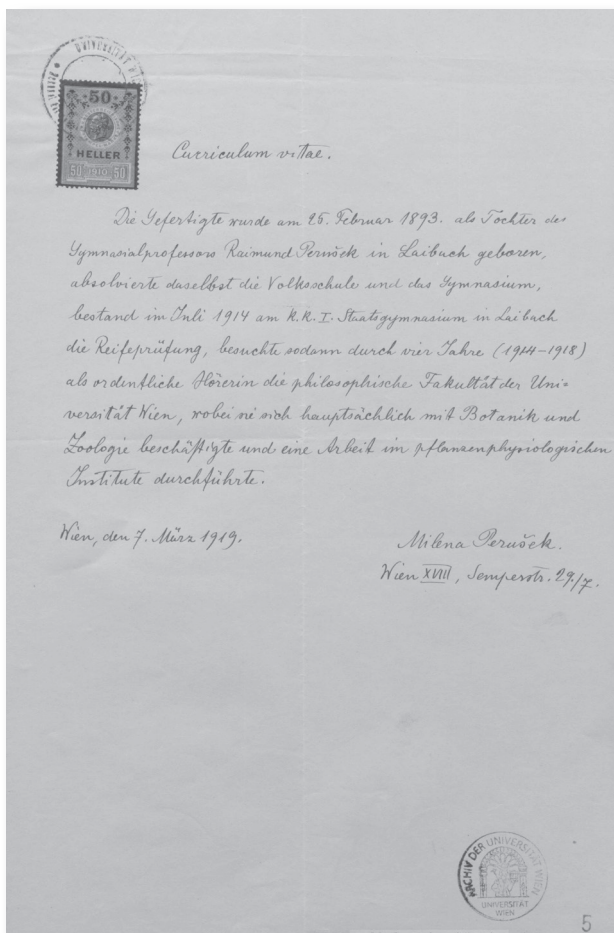 UNIVERSITÄT
50
HELLER
50 1910 50
Curriculum vitae.
Die Gefertigte wurde am 25. Februar 1893. als Tochter des
Gymnasialprofessors Raimund Perušek in Laibach geboren,
absolvierte daselbst die Volksschule und das Gymnasium,
bestand im Juli 1914 am k. k. I. Staatsgymnasium in Laibach
die Reifeprüfung, besuchte sodann durch vier Jahre (1914–1918)
als ordentliche Hörerin die philosophische Fakultät der Uni-
versität Wien, wobei sie sich hauptsächlich mit Botanik und
Zoologie beschäftigte und eine Arbeit im pflanzenphysiologischen
Institute durchführte.
Wien, den 7. März 1919.
Milena Perušek.
Wien XVIII, Semperstr. 29./7.
ARCHIV DER UNIVERSITÄT WIEN
UNIVERSITÄT
WIEN
5